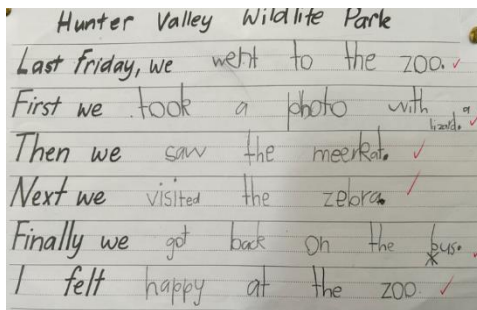 Hunter Valley Wildlife Park
Last Friday, we went to the zoo.
First we took a photo with a lizard.
Then we saw the meerkat.
Next we visited the zebra.
Finally we got back on the bus.
I felt happy at the zoo.